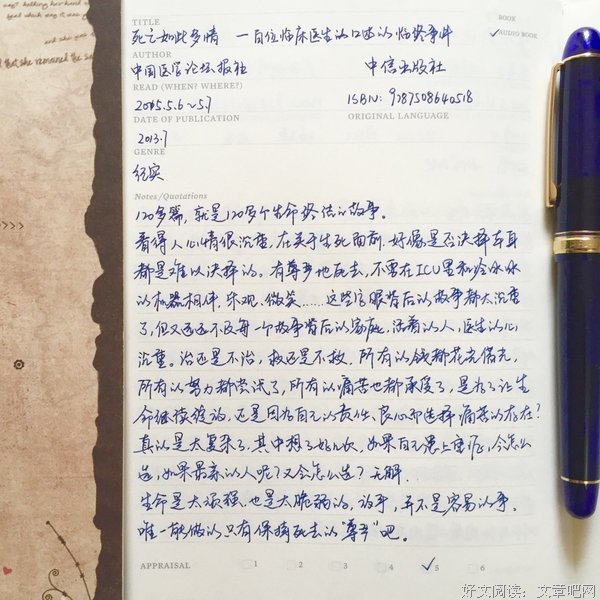 TITLE
BOOK
死亡如此多情 一百位临床医生的口述的临终事件
AUDIO BOOK
AUTHOR
中国医学论坛报社 中信出版社
READ (WHEN? WHERE?)
2015.5.6~5.7 ISBN: 9787508640518
DATE OF PUBLICATION ORIGINAL LANGUAGE
2013.7
GENRE
纪实
Notes/Quotations
120多篇,就是120多个生命终结的故事。
看得人心情很沉重,在关于生死面前,好像是否决择本身
都是难以决择的。有尊严地死去,不要在ICU里和冷冰冰
的机器相伴,乐观、微笑……这些字眼背后的故事都太沉重
了,但又远远不及每一个故事背后的家庭,活着的人,医生的心
沉重。治还是不治,救还是不救,所有的钱都花光借光,
所有的努力都尝试了,所有的痛苦也都承受了,是为了让生
命继续绽放,还是因为自己的责任、良心而选择痛苦的存在?
真的是太复杂了,其中想了好几次,如果自己患上癌症,会怎么
选,如果最亲的人呢?又会怎么选?无解。
生命是太顽强,也是太脆弱的,故事,并不是容易的事。
唯一能做的只有保持死去的"尊严"吧。
APPRAISAL 1 2 3 4 5 6
好文阅读: 文章吧网